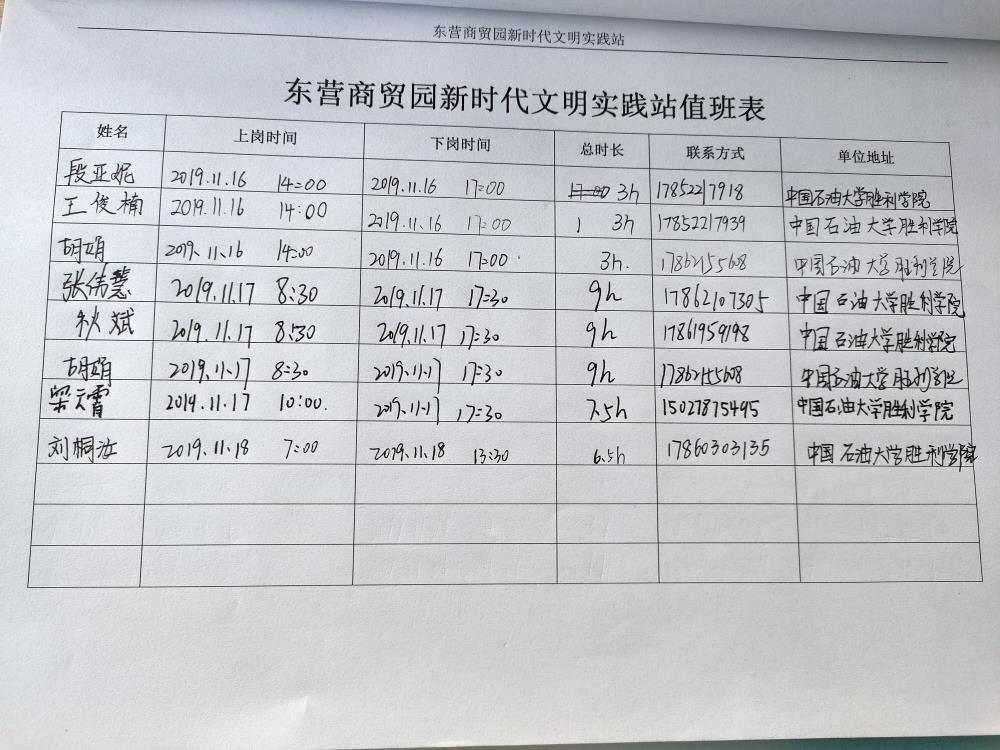 东营商贸园新时代文明实践站
东营商贸园新时代文明实践站值班表
姓名 上岗时间 下岗时间 总时长 联系方式 单位地址
段亚妮 2019.11.16 14:00 2019.11.16 17:00 17:00 3h 17852217918 中国石油大学胜利学院
王俊楠 2019.11.16 14:00 2019.11.16 17:00 3h 17852217939 中国石油大学胜利学院
胡娟 2019.11.16 14:00 2019.11.16 17:00 3h. 17862155608 中国石油大学胜利学院
张伟慧 2019.11.17 8:30 2019.11.17 17:30 9h 17862107305 中国石油大学胜利学院
秋斌 2019.11.17 8:30 2019.11.17 17:30 9h 17861959198 中国石油大学胜利学院
胡娟 2019.11.17 8:30 2019.11.17 17:30 9h 17862155608 中国石油大学胜利学院
2019.11.17 10:00. 2019.11.17 17:30 7.5h 15027875495 中国石油大学胜利学院
刘桐汝 2019.11.18 7:00 2019.11.18 13:30 6.5h 17860303135 中国石油大学胜利学院